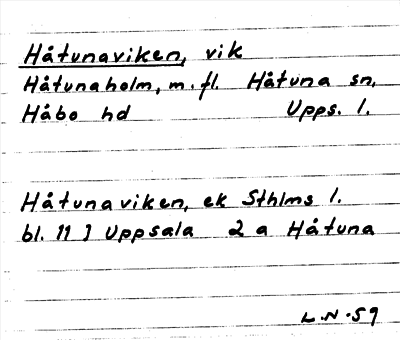 Håtunaviken, vik
Håtunaholm, m. fl. Håtuna sn,
Håbo hd Upps. l.
Håtunaviken, ek Sthlms l.
bl. 11 I Uppsala 2 a Håtuna
L.N.59